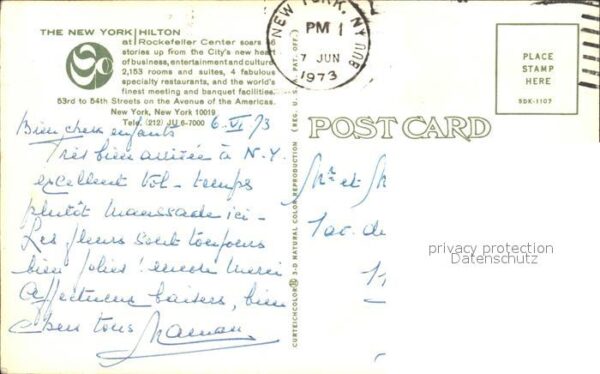 THE NEW YORK HILTON
at Rockefeller Center soars 46
stories up from the City's new heart
of business, entertainment and culture.
2,153 rooms and suites, 4 fabulous
specialty restaurants, and the world's
finest meeting and banquet facilities.
53rd to 54th Streets on the Avenue of the Americas.
New York, New York 10019
Tele. (212) JU 6-7000
6.VI.73
Bien chers enfants
Très bien arrivée à N.Y.
excellent vol - temps
plutôt maussade ici -
Les fleurs sont toujours
bien jolies! encore merci
Affectueux baisers, bien
chers tous Maman
CURTEICHCOLOR 3-D NATURAL COLOR REPRODUCTION (REG. U.S.A. PAT. OFF.)
NEW YORK, NY
PM
7 JUN
1973
POST CARD
PLACE
STAMP
HERE
5DK-1107
Mr et M
1 av. de
privacy protection
Datenschutz